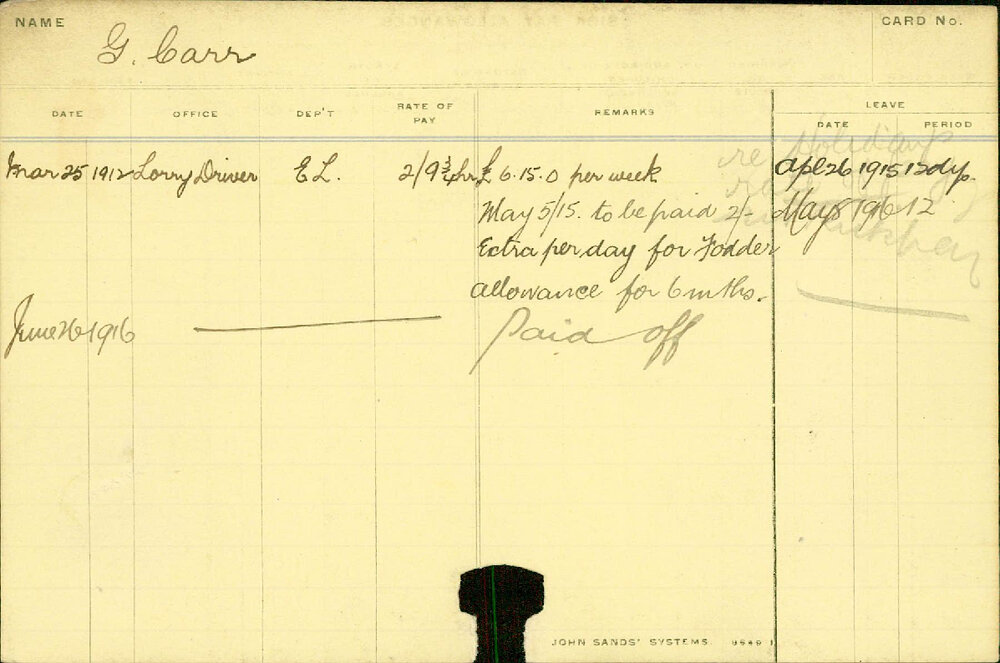 NAME
G. Carr
CARD No.
DATE OFFICE DEP'T RATE OF PAY REMARKS LEAVE
DATE PERIOD
re Holidays
Mar 25 1912 Lorry Driver E L. 2/9 3/4 hr £ 6.15.0 per week Apl 26 1915 12 dys.
May 5/15. to be paid 2/- May 8 1916 12
Extra per day for Fodder
allowance for 6 mths.
June 26 1916 Paid off
JOHN SANDS' SYSTEMS